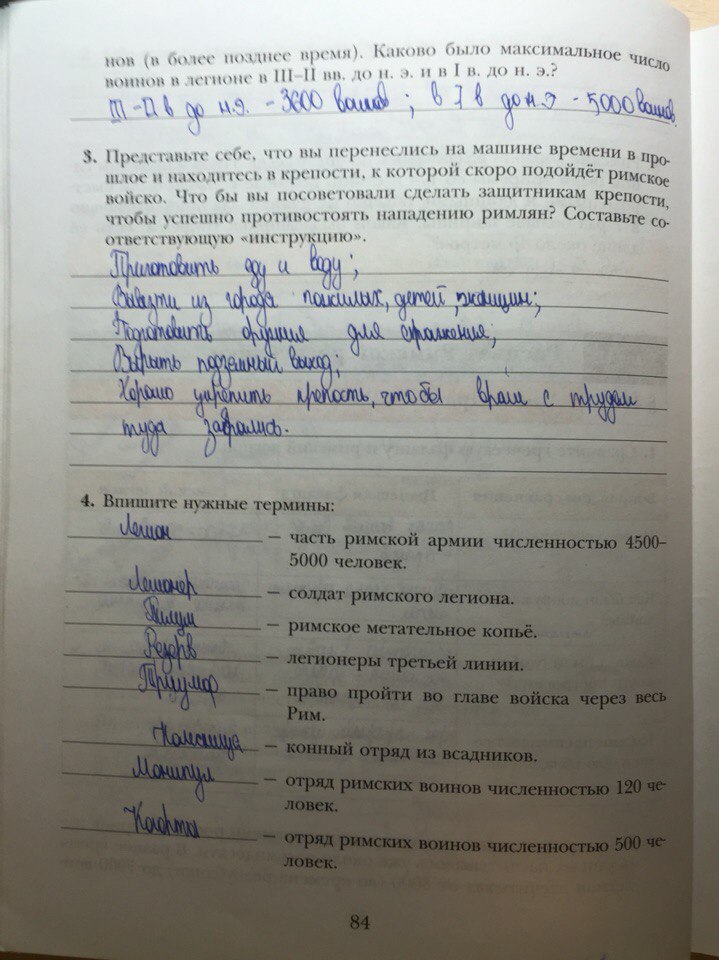 нов (в более позднее время). Каково было максимальное число
воинов в легионе в III–II вв. до н. э. и в I в. до н. э.?
III – II в до н.э. - 3600 воинов ; в I в до н.э - 5000 воинов.
3. Представьте себе, что вы перенеслись на машине времени в про-
шлое и находитесь в крепости, к которой скоро подойдёт римское
войско. Что бы вы посоветовали сделать защитникам крепости,
чтобы успешно противостоять нападению римлян? Составьте со-
ответствующую «инструкцию».
Приготовить еду и воду;
Вывезти из города пожилых, детей, женщин;
Подготовить оружия для сражения;
Вырыть подземный выход;
Хорошо укрепить крепость, чтобы враги с трудом
туда забрались.
4. Впишите нужные термины:
Легион — часть римской армии численностью 4500–
5000 человек.
Легионер — солдат римского легиона.
Пилум — римское метательное копьё.
Резерв — легионеры третьей линии.
Триумф — право пройти во главе войска через весь
Рим.
— конный отряд из всадников.
Манипул — отряд римских воинов численностью 120 че-
ловек.
Когорты — отряд римских воинов численностью 500 че-
ловек.
84